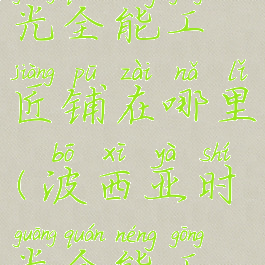 光全能工
jiàng pū zài nǎ lǐ
匠铺在哪里
bō xī yà shí
(波西亚时
guāng quán néng gōng
光全能工